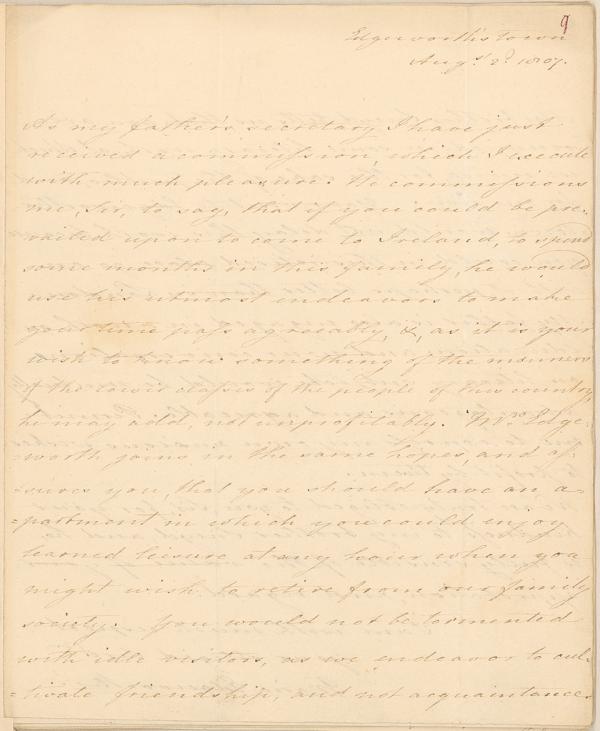 9
Edgeworth's town
Augst 2d. 1807.
As my father's secretary I have just
received a commission, which I execute
with much pleasure. He commissions
me, Sir, to say, that if you could be pre-
vailed upon to come to Ireland, to spend
some months in this family, he would
use his utmost endeavors to make
your time pass agreeably, &, as it is your
wish to know something of the manners
of the lower classes of the people of this country,
he may add, not unprofitably. Mrs. Edge-
worth joins in the same hopes, and as-
-sures you, that you should have an a-
=partment in which you could enjoy
learned leisure at any hour when you
might wish to retire from our family
society. You would not be tormented
with idle visitors, as we endeavor to cul-
=tivate friendship, and not acquaintance.